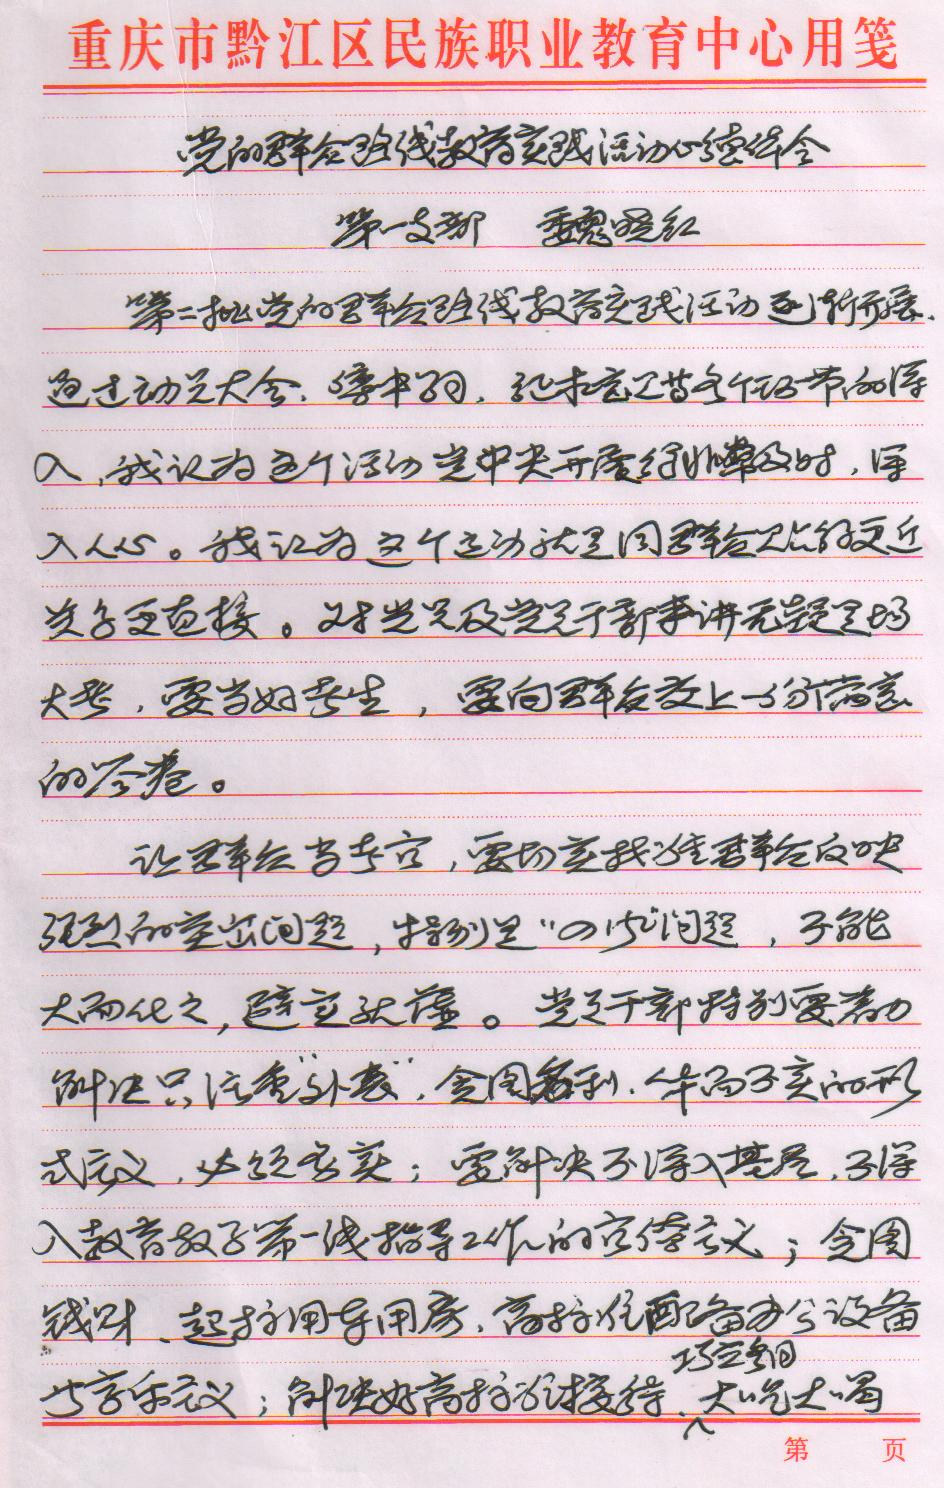 重庆市黔江区民族职业教育中心用笺
党的群众路线教育实践活动心得体会
第一支部 魏晓红
第二批党的群众路线教育实践活动逐渐开展.
通过动员大会、集中学习、记木应卫等各个环节的深
入,我认为这个活动党中央开展得非常及时,深
入人心。我认为这个活动就是同群众贴的更近
关系更直接。对党员及党员干部来讲无疑是场
大考,要当好考生,要向群众交上一份满意
的答卷。
让群众当考官,要切实找准群众反映
强烈的突出问题,特别是“四风”问题,不能
大而化之,避实就虚。党员干部特别要着力
解决只注重“外表”,贪图名利、华而不实的形
式主义,政绩要实;要解决不深入基层,不深
入教育教学第一线指导工作的官僚主义;贪图
钱财、超标用车用房、高标准配备办公设备
的享乐主义;解决好高标准接待、巧立名目大吃大喝
第 页